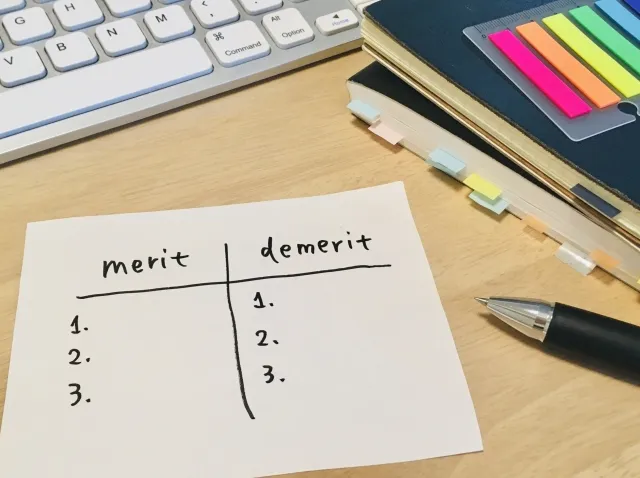 G H J K L
V B N M < , > .
⌘ Command Alt Option Home
merit demerit
1. 1.
2. 2.
3. 3.